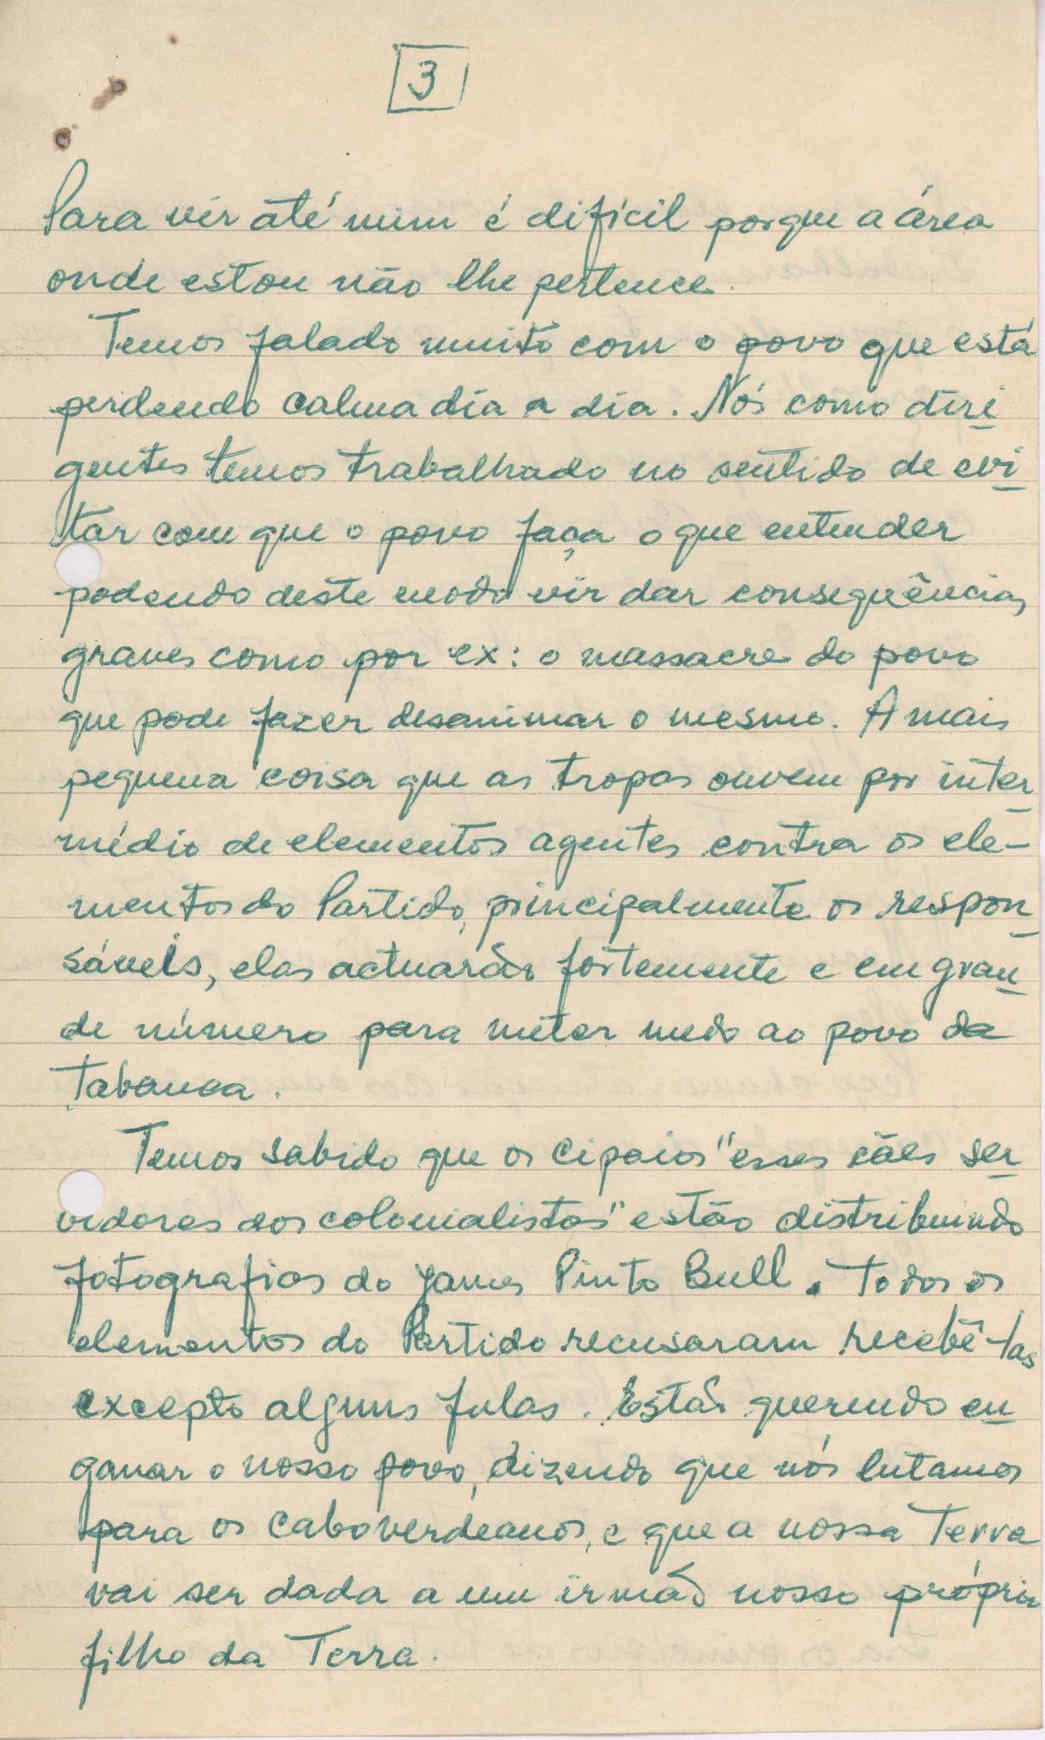 3
Para vir até mim é difícil porque a área
onde estou não lhe pertence.
Temos falado muito com o povo que está
perdendo calma dia a dia. Nós como diri
gentes temos trabalhado no sentido de evi
tar com que o povo faça o que entender
podendo deste modo vir dar consequências
graves como por ex: o massacre do povo
que pode fazer desanimar o mesmo. A mais
pequena coisa que as tropas ouvem por inter
médio de elementos agentes contra os ele-
mentos do Partido, principalmente os respon
sáveis, elas actuarão fortemente e em gran
de número para meter medo ao povo da
Tabanca.
Temos sabido que os cipaios "esses cães ser
vidores dos colonialistas" estão distribuindo
fotografias do James Pinto Bull. Todos os
elementos do Partido recusaram recebê-las
excepto alguns fulas. Estão querendo en
ganar o nosso povo, dizendo que nós lutamos
para os caboverdeanos, e que a nossa Terra
vai ser dada a um irmão nosso próprio
filho da Terra.